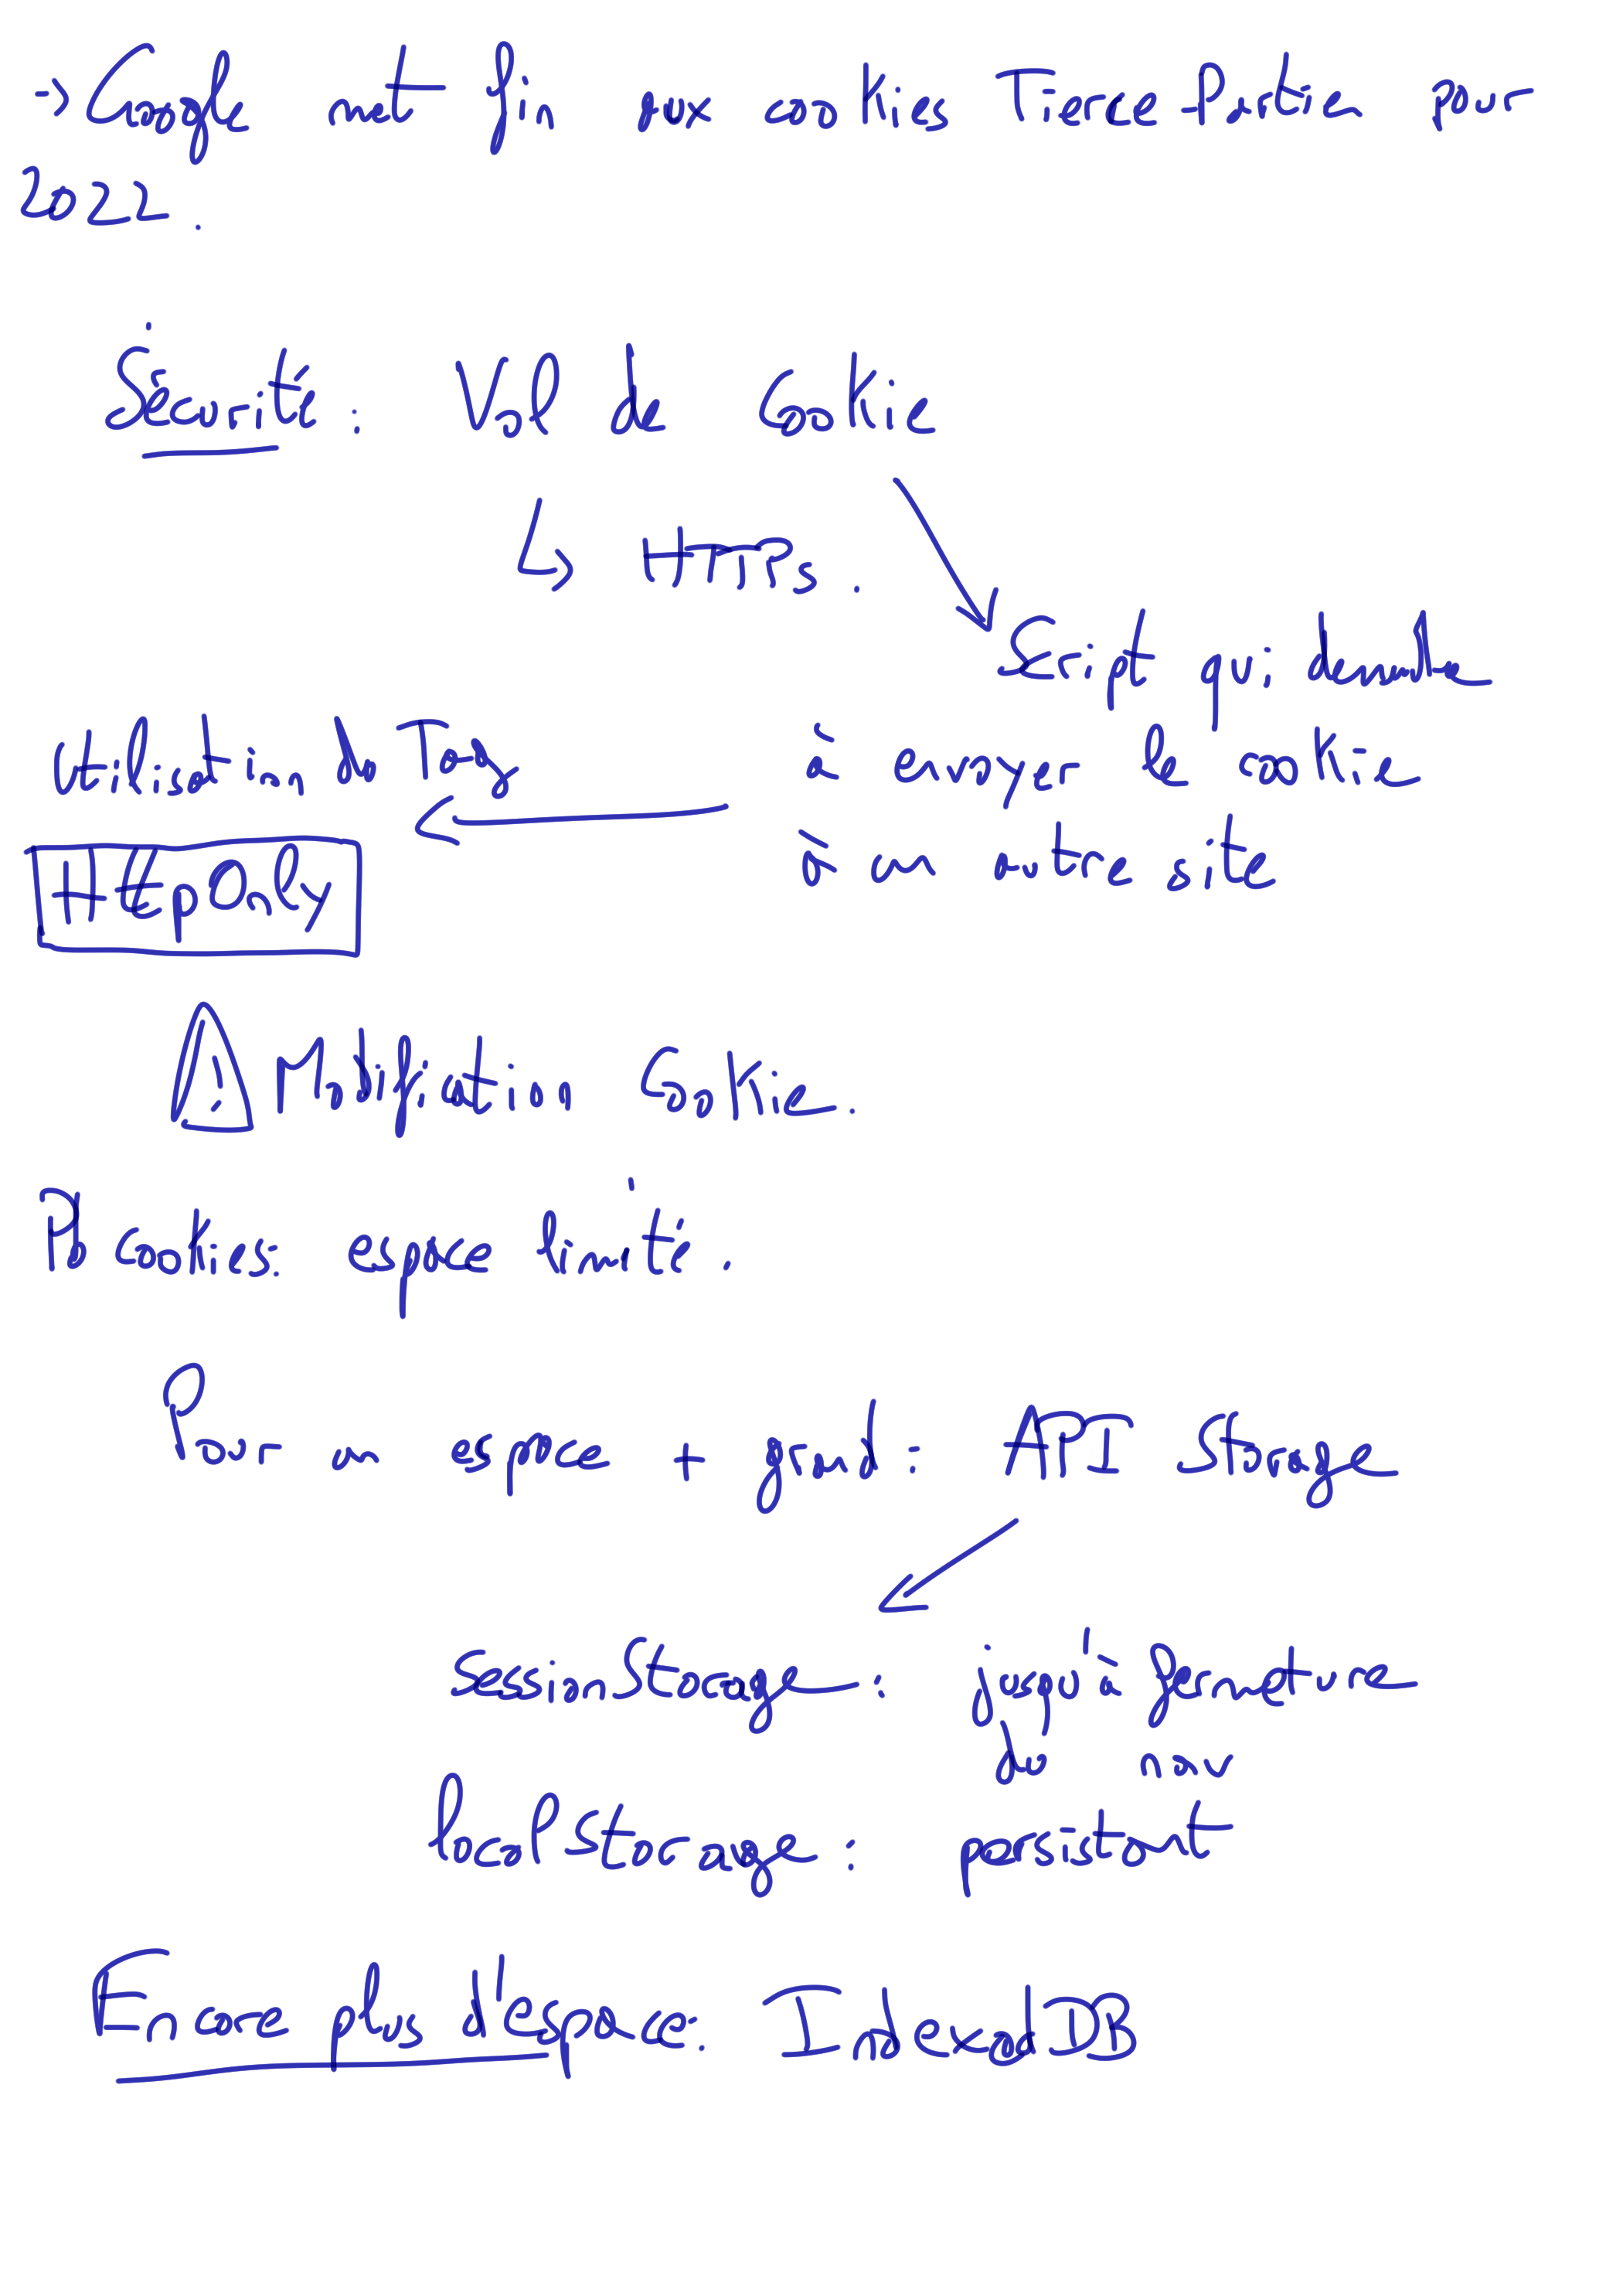 → Google met fin aux cookies Tierce-Partie pour
2022.
Sécurité : Vol de Cookie
↳ HTTPs.
Script qui demande
à envoyer le cookie
à un autre site
Utilisation du Tag
HttpOnly
⚠ Modification Cookie.
Pb cookies: espace limité.
Pour un espace + grand : API Storage
sessionStorage : jusqu'à fermeture
du nav
localStorage : persistant
Encore plus d'espace: IndexedDB